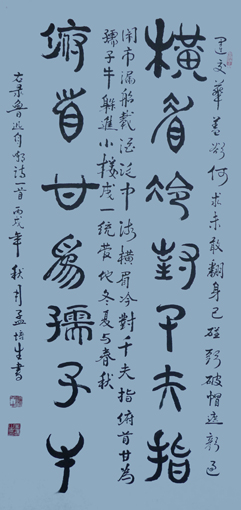 橫眉冷對千夫指
俯首甘為孺子牛
運交華蓋欲何求未敢翻身已碰頭破帽遮顏過
鬧市漏船載酒泛中流橫眉冷對千夫指俯首甘為
孺子牛躲進小樓成一統管他冬夏與春秋
右录魯迅自嘲詩一首丙戌年秋月孟培生書